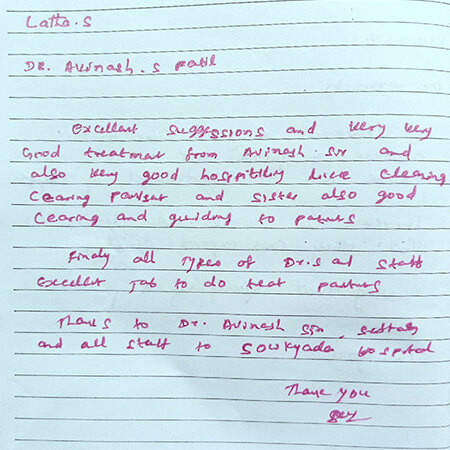 Latha.S
DR. Avinash.S Patil
Excellent suggessions and very very
Good treatment from Avinash sir and
also very good hospitility nice cleaning
cearing and sister also good
cearing and guiding to
Finaly all Types of Dr.s all staff
Excellent Job to do treat
Thans to Dr. Avinash sir
and all staff to SOWKYADA Hospital
Thank you